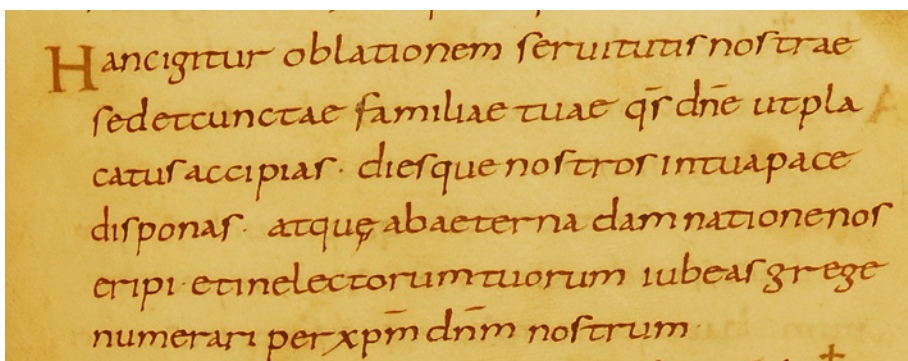 Hancigitur oblationem seruitutis nostrae
sedetcunctae familiae tuae qs̄ dn̄e utpla
catusaccipias · diesque nostros intuapace
disponas · atquę abaeterna damnationenos
eripi · etinelectorumtuorum iubeas grege
numerari per xpm̄ dn̄m nostrum ·